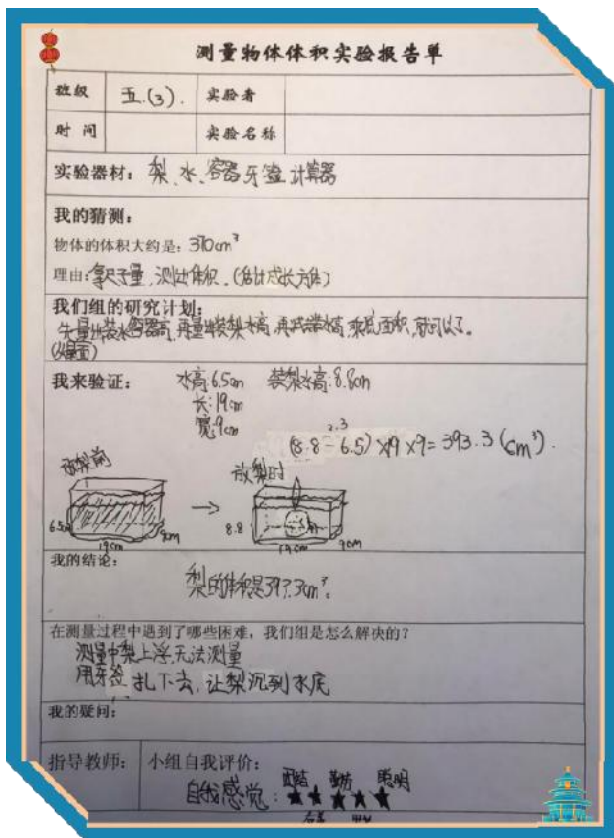 测量物体体积实验报告单
班级 五.(3). 实验者
时间 实验名称
实验器材：梨、水、容器 牙签 计算器
我的猜测：
物体的体积大约是：370cm³
理由：拿尺子量，测出体积。(估计成长方体)
我们组的研究计划：
先量出装水容器高，再量出装梨水高，再 水高，乘底面积，就可以了。
我来验证： 水高：6.5cm 装梨水高：8.8cm
长：19cm
宽：9cm
2.3
(8.8-6.5)×19×9=393.3(cm³).
放梨前 放梨时
6.5cm 19cm 9cm 8.8 19cm 9cm
我的结论：
梨的体积是393.3cm³。
在测量过程中遇到了哪些困难，我们组是怎么解决的？
测量中梨上浮，无法测量
用牙签扎下去，让梨沉到水底
我的疑问：
指导教师： 小组自我评价：
团结 勤劳 聪明
自我感觉：★★★★★